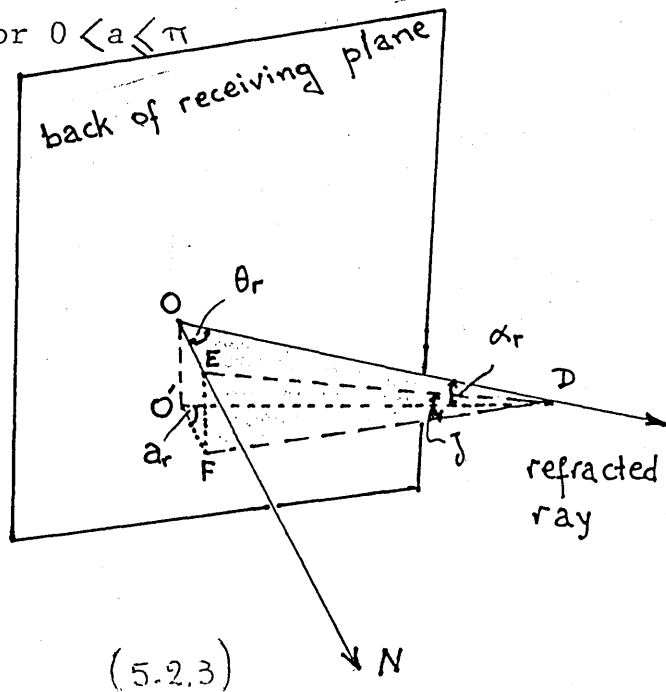 or 0 < a ≤ π
back of receiving plane
O
θr
E
αr
D
O'
ar
F
J
refracted
ray
(5.2.3)
N